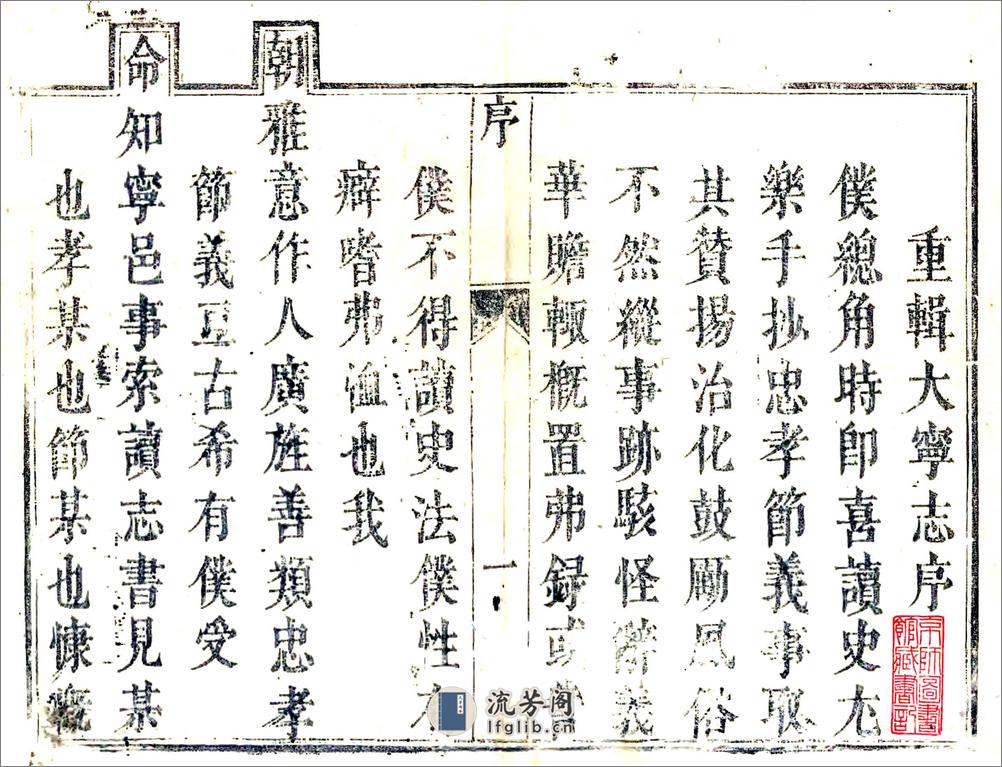 重輯大寧志序
僕總角時卽喜讀史尤
樂手抄忠孝節義事取
其贊揚治化鼓勵風俗
不然縱事跡駭怪辭義
華贍輒概置弗録或
序
一
僕不得讀史法僕性
癖嗜弗洫也我
朝雅意作人廣旌善類忠孝
節義亘古希有僕受
命知寧邑事索讀志書見某
也孝某也節某也慷慨
京師圖書
館藏書記
流芳阁
lfglib.cn